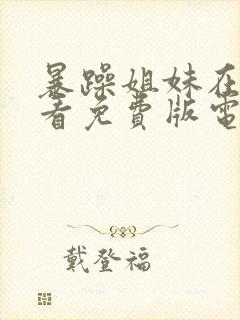 暴躁姐妹在
看免費版電
戴登福